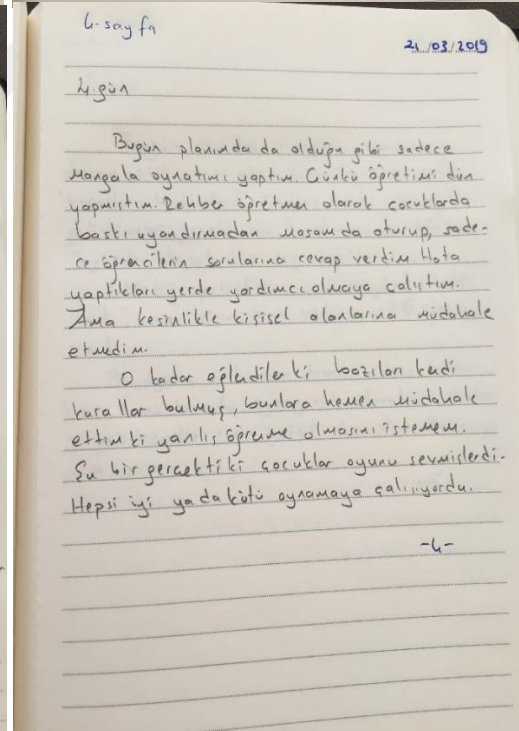 4. sayfa
21/03/2019
4. gün
Bugün planımda da olduğu gibi sadece
Mangala oynatımı yaptım. Çünkü öğretimi dün
yapmıştım. Rehber öğretmen olarak çocuklarda
baskı uyandırmadan masamda oturup, sade-
ce öğrencilerin sorularına cevap verdim. Hata
yaptıkları yerde yardımcı olmaya çalıştım.
Ama kesinlikle kişisel alanlarına müdahale
etmedim.
O kadar eğlendiler ki bazıları kendi
kurallar bulmuş, bunlara hemen müdahale
ettim ki yanlış öğrenme olmasını istemem.
Şu bir gerçekti ki çocuklar oyunu sevmişlerdi.
Hepsi iyi ya da kötü oynamaya çalışıyordu.
-4-